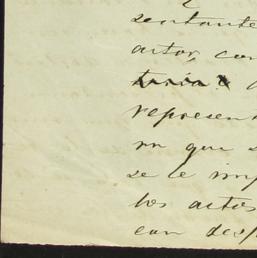 sentante
autor, con
represent
rn que s
se le imp
los autos
con desp